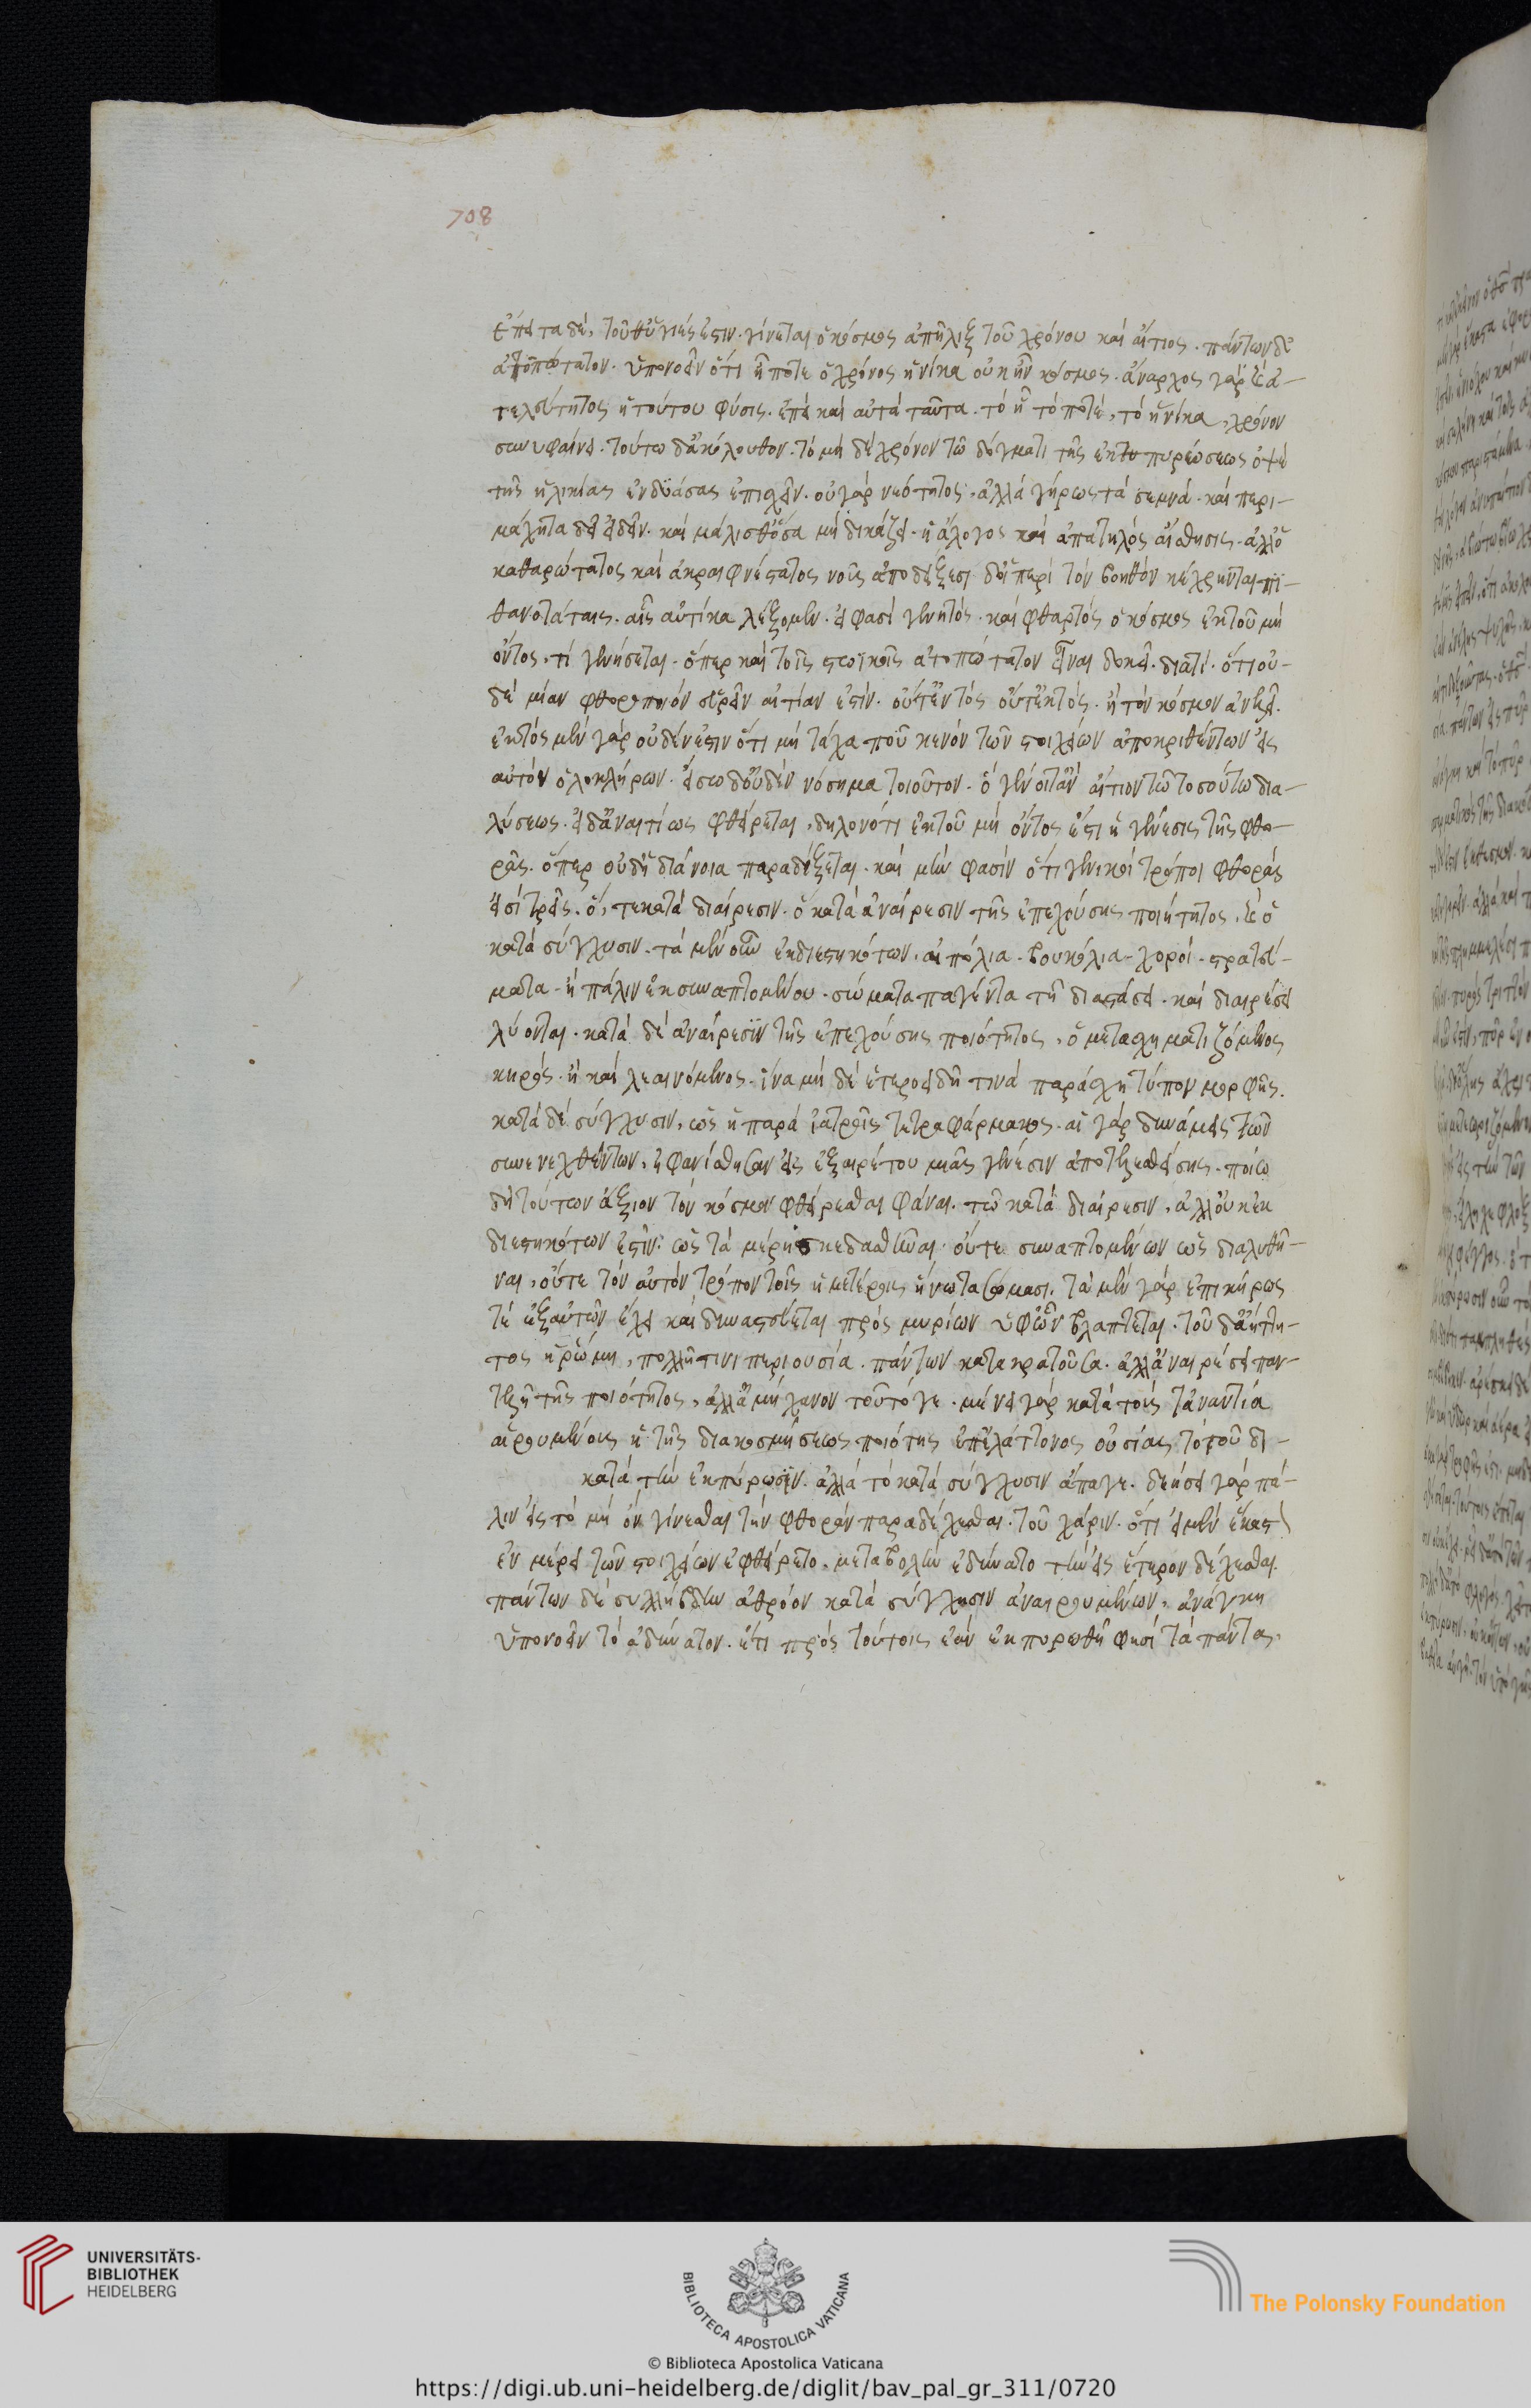 708
ἔπειτα δέ, τοῦθ' ὑγιές ἐστιν. γίνεται ὁ κόσμος ἀπῆλιξ τοῦ χρόνου καὶ αἴτιος. πάντων δὲ
ἀτοπώτατον. ὑπονοεῖν ὅτι ἦν ποτε ὁ χρόνος ἡνίκα οὐκ ἦν κόσμος. ἄναρχος γὰρ καὶ ἀ-
τελεύτητος ἡ τούτου φύσις. ἐπεὶ καὶ αὐτὰ ταῦτα. τὸ ἦν τὸ ποτέ, τὸ ἡνίκα, χρόνον
συνυφαίνει. τούτω δ' ἀκόλουθον. τὸ μὴ δὲ χρόνον τῶ δόγματι τῆς ἐκπυρώσεως ὀψὲ
τῆς ἡλικίας ἐνδυάσας ἐπισχεῖν. οὐ γὰρ νεότητος. ἀλλὰ γήρως τὰ σεμνὰ. καὶ περι-
μάχητα δεῖ εἰδεῖν. καὶ μάλισθ' ὅσα μὴ δικάζει. ἡ ἄλογος καὶ ἀπατηλὸς αἴσθησις. ἀλλ' ὁ
καθαρώτατος καὶ ἀκραιφνέστατος νοῦς ἀποδείξεσι δ' οἱ περὶ τὸν βοηθὸν κέχρηνται πι-
θανοτάταις. αἷς αὐτίκα λέξομεν. εἰ φασὶ γενητὸς. καὶ φθαρτὸς ὁ κόσμος ἐκ τοῦ μὴ
ὄντος. τί γενήσεται. ὅπερ καὶ τοῖς στωϊκοῖς ἀτοπώτατον εἶναι δοκεῖ. διατί. ὅτι οὐ-
δὲ μίαν φθοροποιὸν εὑρεῖν αἰτίαν ἐστίν. οὔτ' ἐντὸς οὔτ' ἐκτὸς. ἣ τὸν κόσμον ἀνελεῖ.
ἐκτὸς μὲν γὰρ οὐδέν ἐστιν ὅτι μὴ τάχα που κενὸν τῶν στοιχείων ἀποκριθέντων εἰς
αὐτὸν ὁλοκλήρων. εἴσω δ' οὐδὲν νόσημα τοιοῦτον. ὃ γένοιτ' ἂν αἴτιον τῶ τοσούτω δια-
λύσεως. εἰ δ' ἀναιτίως φθείρεται, δηλονότι ἐκ τοῦ μὴ ὄντος ἔσται ἡ γένεσις τῆς φθο-
ρᾶς. ὅπερ οὐδ' ἡ διάνοια παραδέξεται. καὶ μὴν φασὶν ὅτι γενικοὶ τρόποι φθορᾶς
εἰσὶ τρεῖς. ὅ, τε κατὰ διαίρεσιν. ὁ κατὰ ἀναίρεσιν τῆς ἐπεχούσης ποιήτητος, καὶ ὁ
κατὰ σύγχυσιν. τὰ μὲν οὖν ἐκ διεστηκότων. αἰπόλια. βουκόλια. χοροί. στρατεύ-
ματα. ἢ πάλιν ἐκ συναπτομένου. σώματα παγέντα τῆ διαστάσει. καὶ διαιρέσει
λύονται. κατὰ δὲ ἀναίρεσιν τῆς ἐπεχούσης ποιότητος, ὁ μετασχηματιζόμενος
κηρός. ἢ καὶ λεαινόμενος. ἵνα μὴ δὲ ἑτεροειδῆ τινὰ παράσχη τύπον μορφῆς.
κατὰ δὲ σύγχυσιν, ὡς ἡ παρὰ ἰατροῖς τετραφάρμακος. αἱ γὰρ δυνάμεις τῶν
συνενεχθέντων, ἠφανίσθησαν εἰς ἐξαιρέτου μιᾶς γένεσιν ἀποτελεσθείσης. ποίω
δὴ τούτων ἄξιον τὸν κόσμον φθείρεσθαι φάναι. τῶ κατὰ διαίρεσιν, ἀλλ' οὐκ ἐκ
διεστηκότων ἐστὶν. ὡς τὰ μέρη σκεδασθῆναι. οὔτε συναπτομένων ὡς διαλυθῆ-
ναι. οὔτε τὸν αὐτὸν τρόπον τοῖς ἡμετέροις ἥνωται σώμασι. τὰ μὲν γὰρ ἐπικήρως
τὲ ἐξ αὑτῶν ἔχει καὶ δυναστεύεται πρὸς μυρίων ὑφ' ὧν βλάπτεται. τοῦ δ' ἀήττη-
τος ἡ ῥώμη, πολλῆ τινι περιουσία. πάντων κατακρατοῦσα. ἀλλ' ἀναιρέσει παν-
τελῆ τῆς ποιότητος, ἀλλ' ἀμήχανον τοῦτό γε. μένει γὰρ κατὰ τοὺς τἀναντία
αἱρουμένους ἡ τῆς διακοσμήσεως ποιότης ἐπ' ἐλάττονος οὐσίας, τὸ τοῦ δι-
κατὰ τὴν ἐκπύρωσιν. ἀλλὰ τὸ κατὰ σύγχυσιν ἄπαγε. δεήσει γὰρ πά-
λιν εἰς τὸ μὴ ὂν γίνεσθαι τὴν φθορὰν παραδέχεσθαι. τοῦ χάριν. ὅτι εἰ μὲν ἕκαστον
ἐν μέρει τῶν στοιχείων ἐφθείρετο. μεταβολὴν ἐδύνατο τὴν εἰς ἕτερον δέχεσθαι.
πάντων δὲ συλλήβδην ἀθρόον κατὰ σύγχυσιν ἀναιρουμένων. ἀνάγκη
ὑπονοεῖν τὸ ἀδύνατον. ἔτι πρὸς τούτοις ἐὰν ἐκπυρωθῆ φησὶ τὰ πάντα,
UNIVERSITÄTS-
BIBLIOTHEK
HEIDELBERG
BIBLIOTECA APOSTOLICA VATICANA
The Polonsky Foundation
© Biblioteca Apostolica Vaticana
https://digi.ub.uni-heidelberg.de/diglit/bav_pal_gr_311/0720